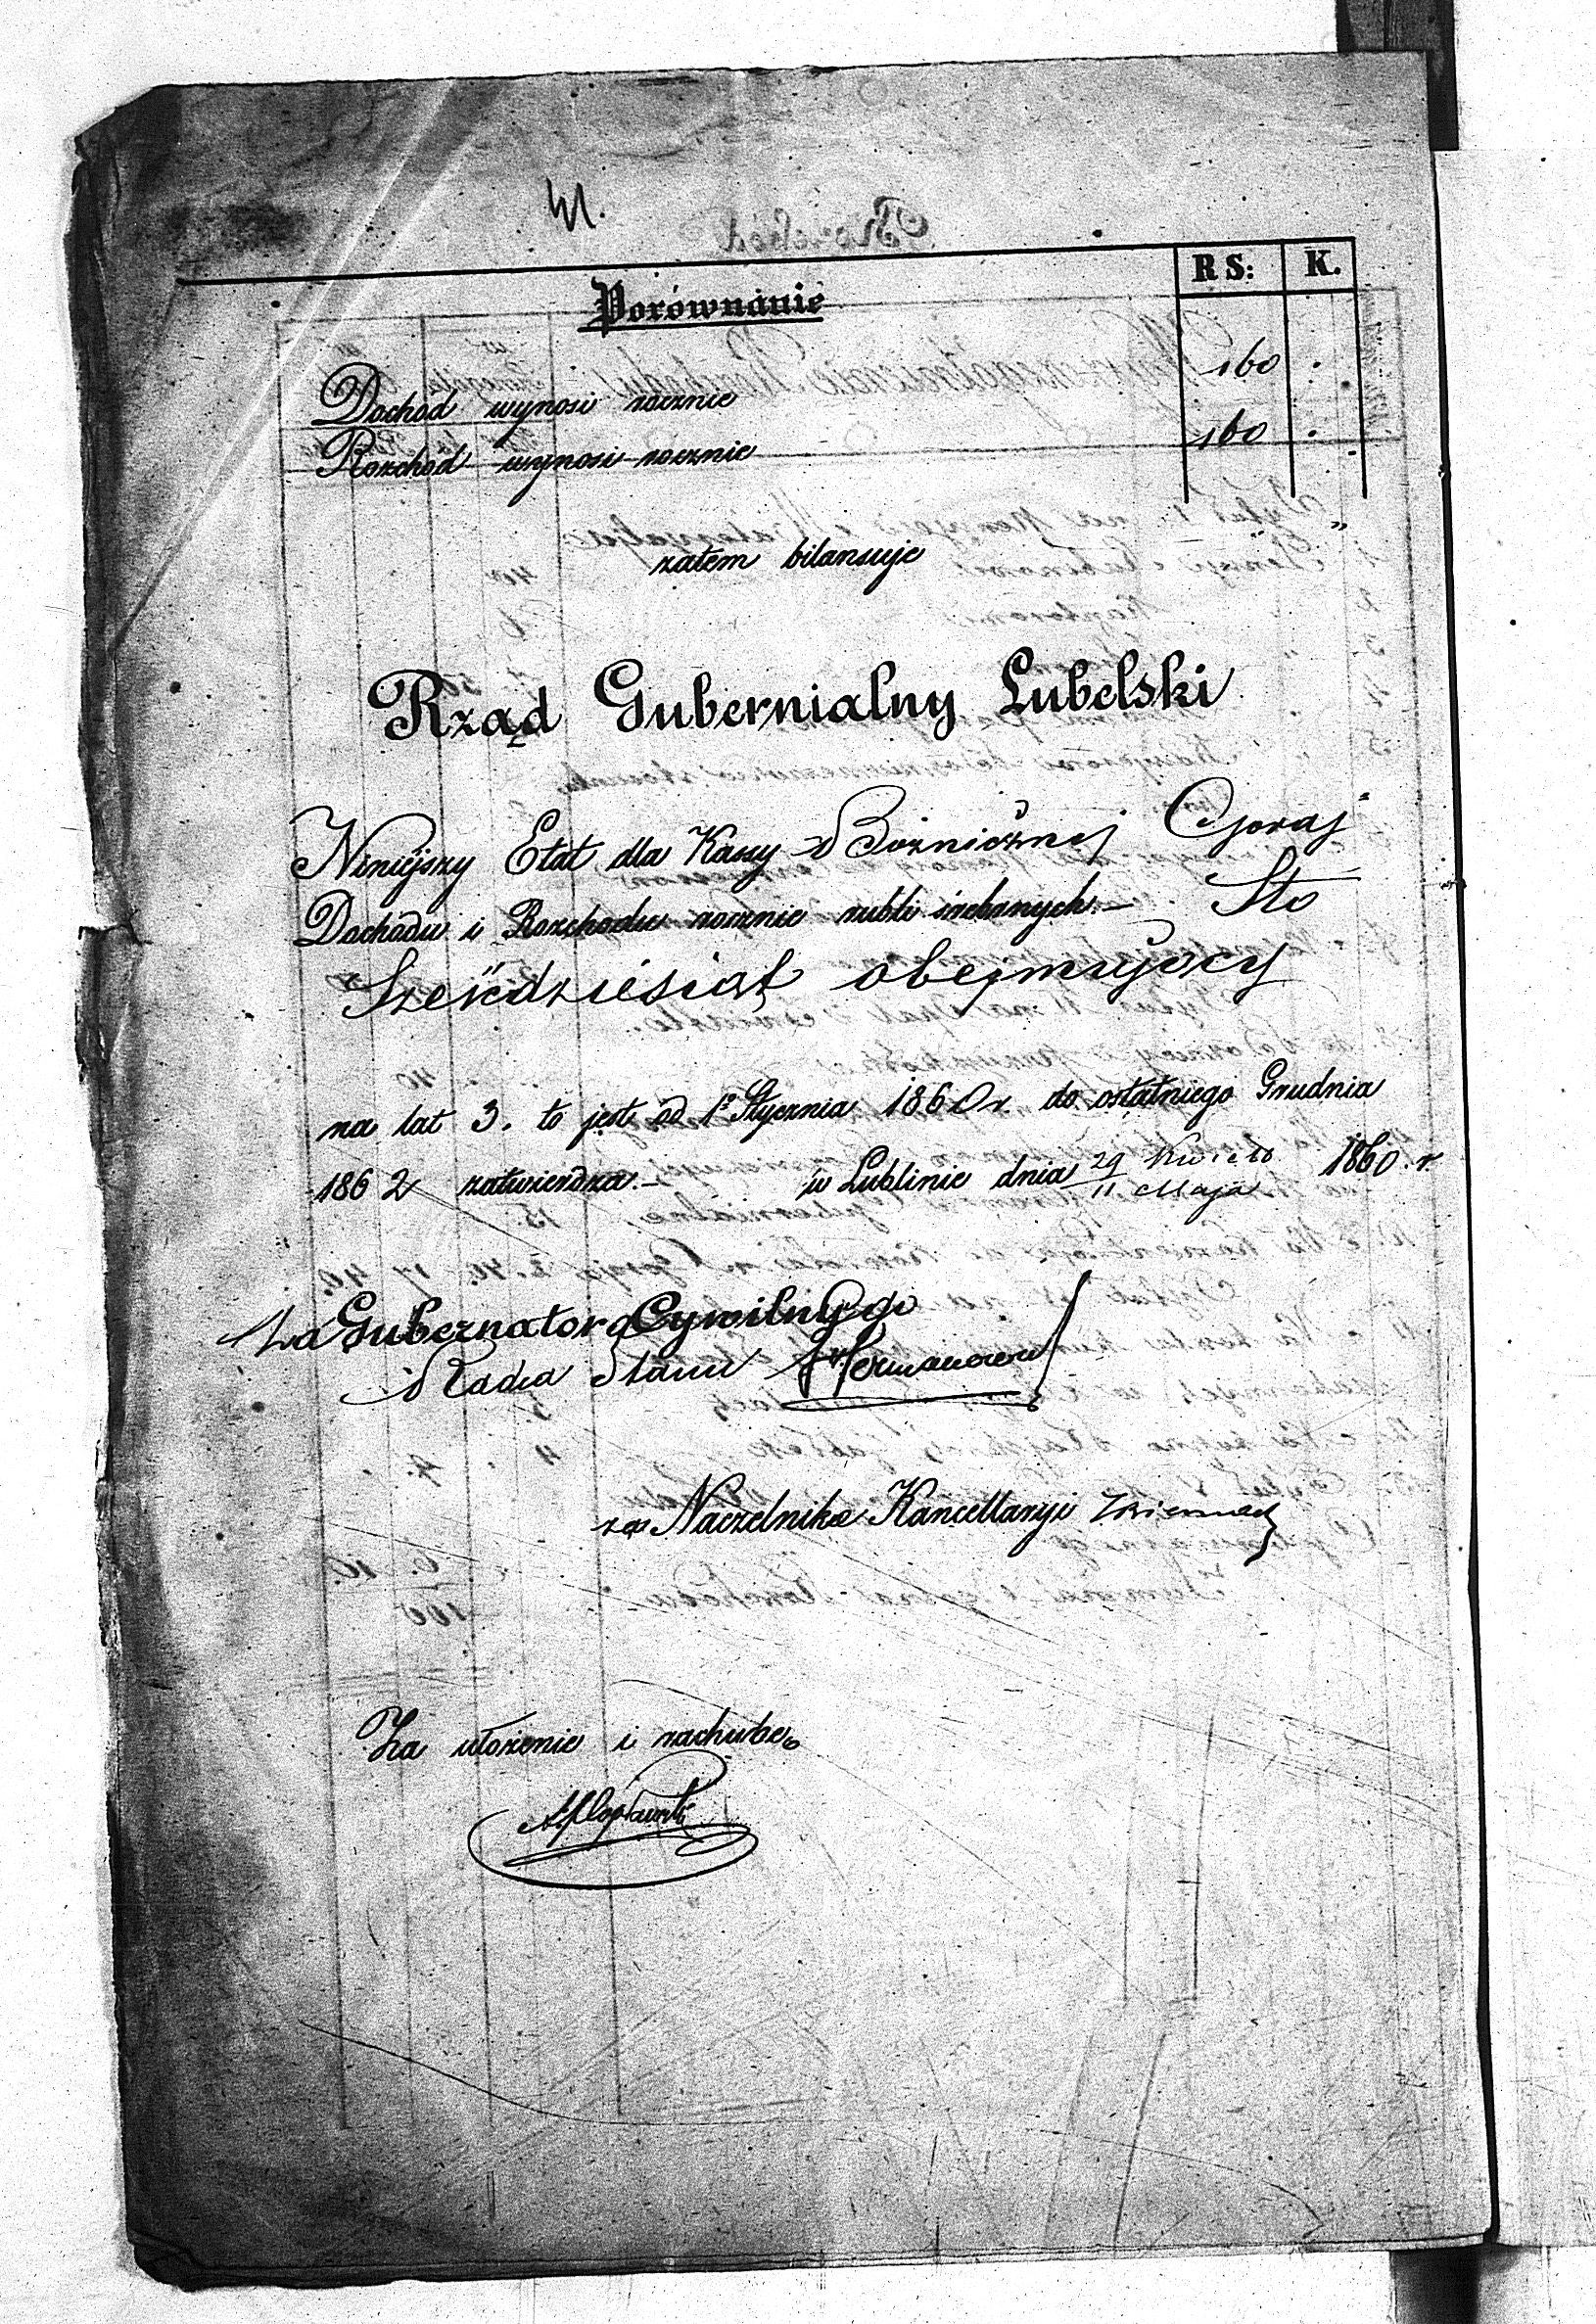 RS: K.
Porównanie
Dochód wynosi rocznie 160 .
Rozchód wynosi rocznie 160 .
zatem bilansuje "
Rząd Gubernialny Lubelski
Niniejszy Etat dla Kassy Bóżnicznej Goraj
Dochodu i Rozchodu rocznie rubli srebrnych.— Sto
Sześćdziesiąt obejmujący
na lat 3. to jest od 1º Stycznia 1860 r. do ostatniego Grudnia
1862 zatwierdza.— w Lublinie dnia 29 Kwietn / 11 Maja 1860. r.
Za Gubernatora Cywilnego
Radca Stanu
za Naczelnika Kancellaryi
Za ułożenie i rachubę